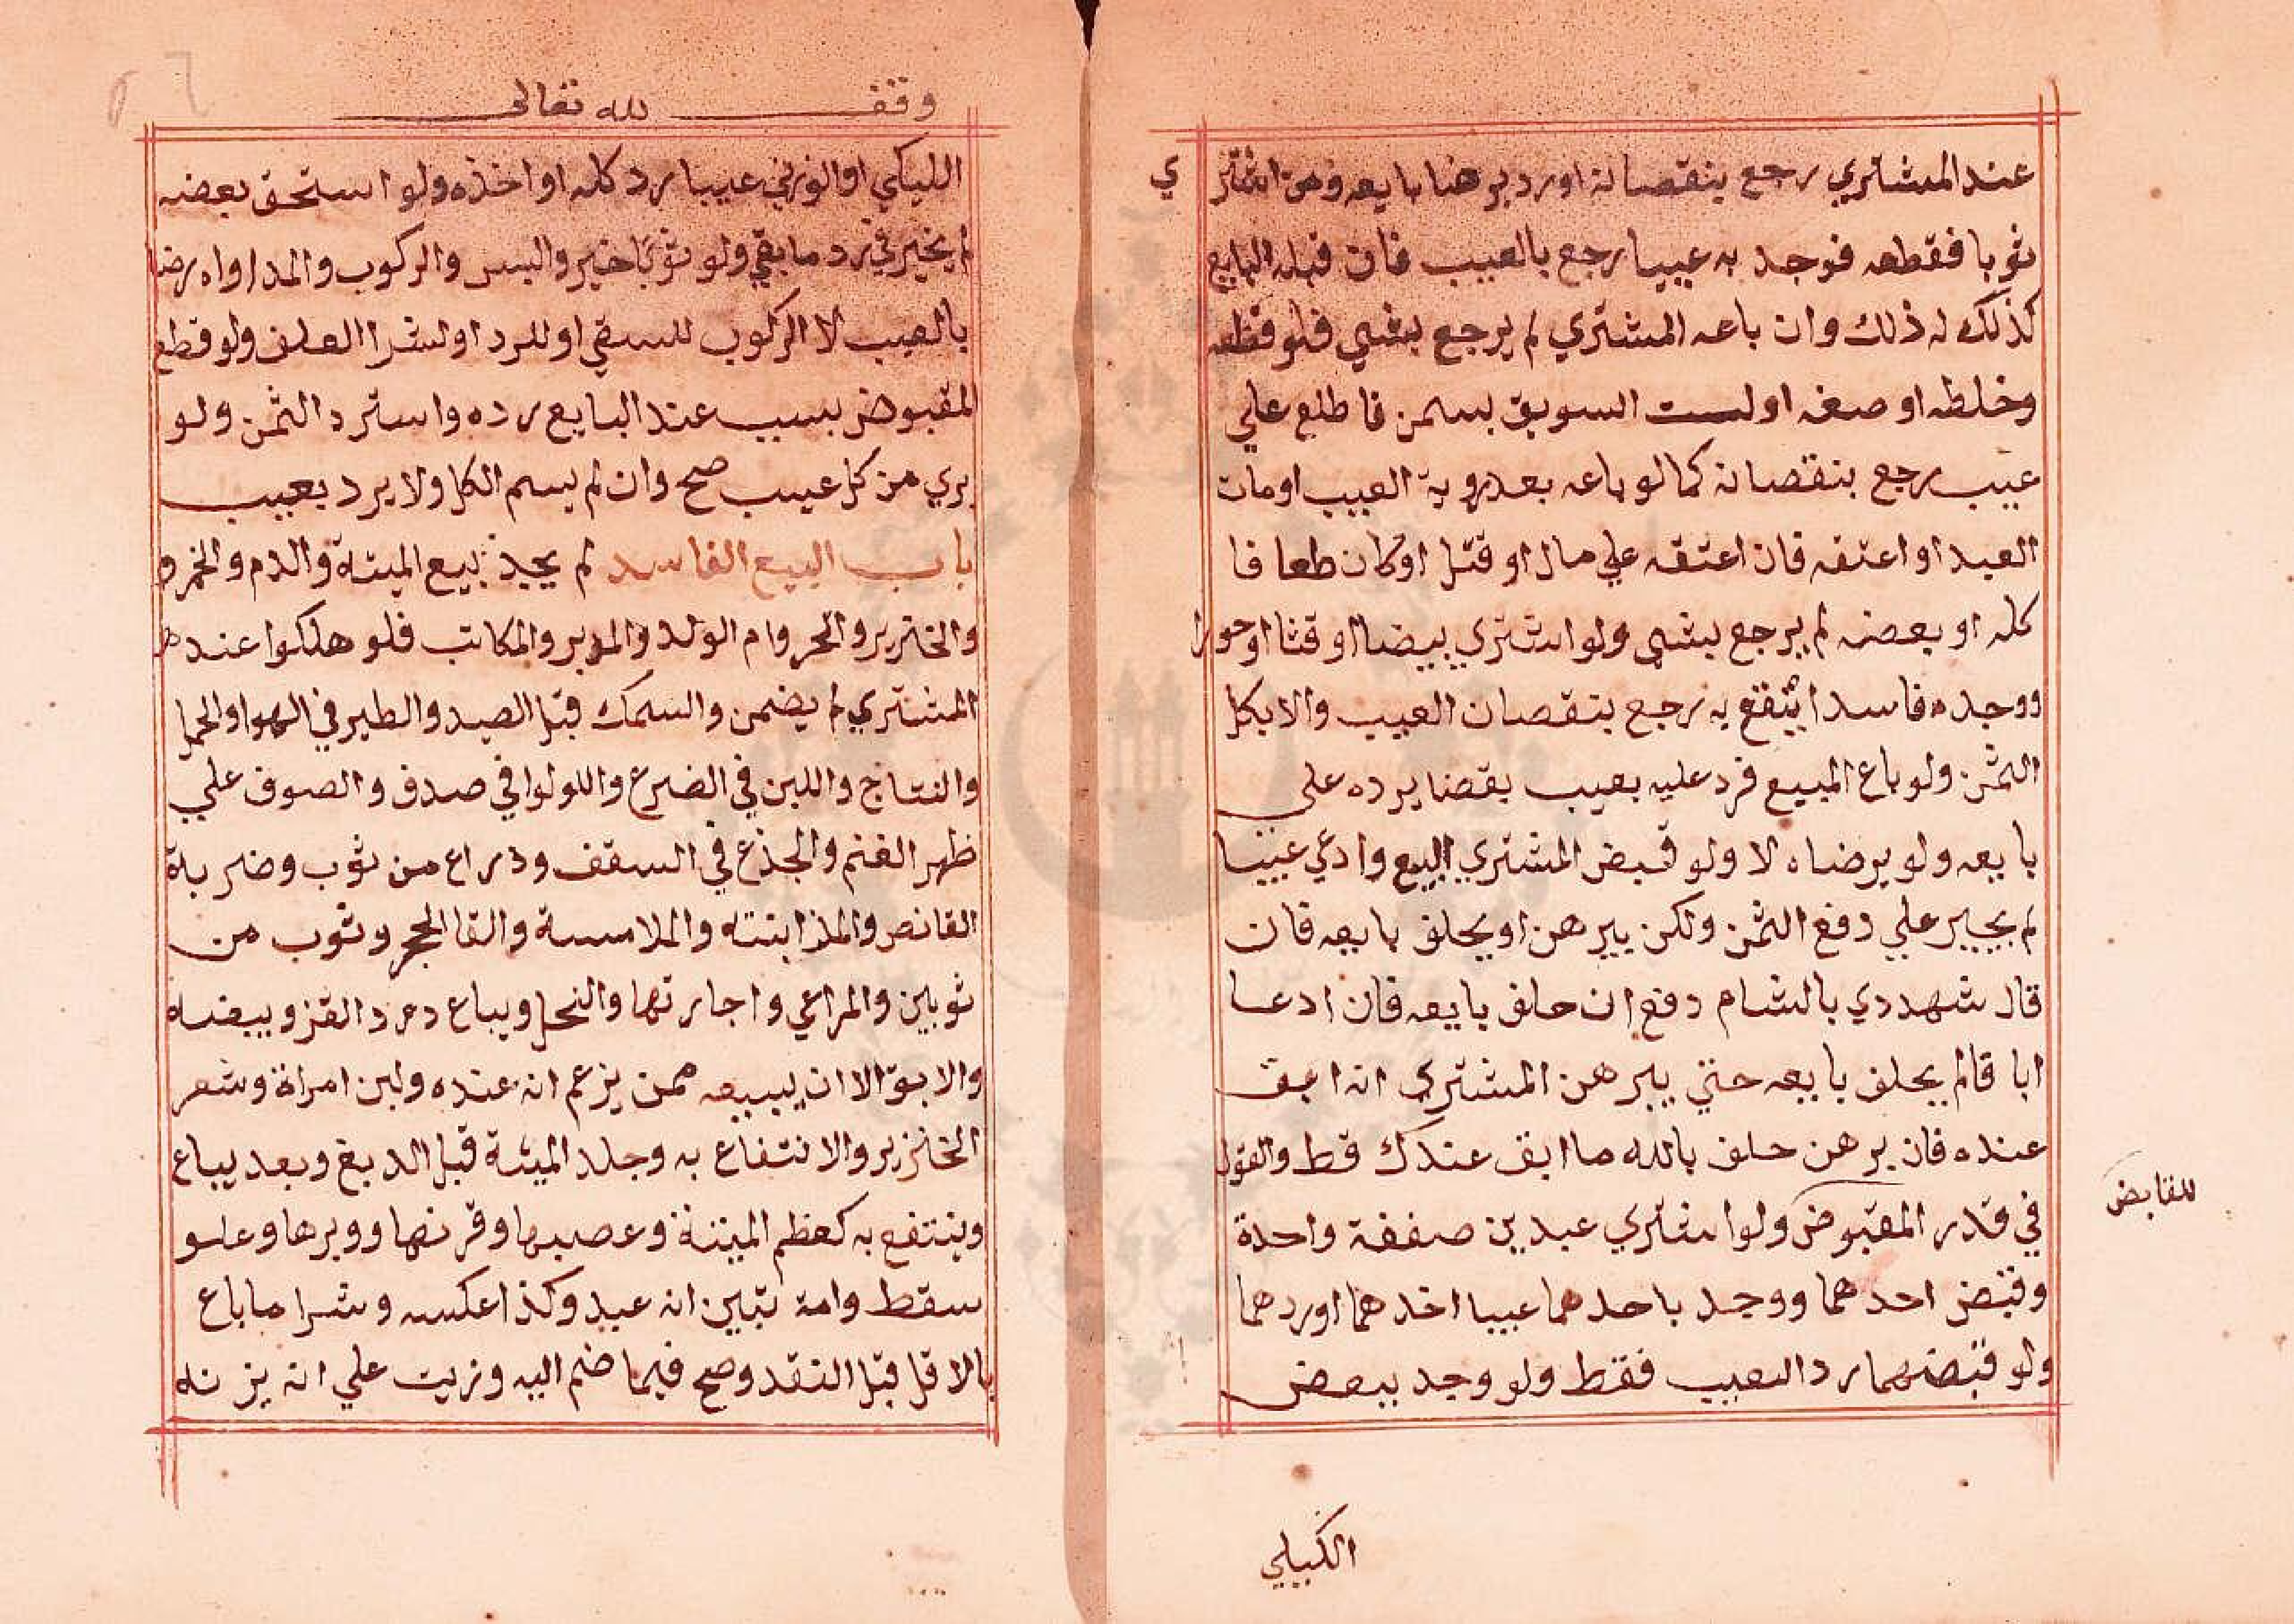 عند المشتري رجع بنقصانه او رد برضا بايعه ومن اشتري
ثوبا فقطعه فوجد به عيبا رجع بالعيب فان قبله البايع
كذلك له ذلك وان باعه المشتري لم يرجع بشي فلو قطعه
وخلطه او صبغه او لست السويق بسمن فاطلع علي
عيب رجع بنقصانه كما لو باعه بعد روية العيب او مات
العبد او اعتقه فان اعتقه علي مال او قتل او كان طعا فا
كله او بعضه لم يرجع بشي ولو اشتري بيضا او قثا او جوزا
ووجده فاسدا ينتفع به رجع بنقصان العيب والا بكل
الثمن ولو باع المبيع فرد عليه بعيب بقضا يرده على
بايعه ولو برضاه لا ولو قبض المشتري البيع وادعي عيبا
لم يجبر علي دفع الثمن ولكن يبرهن او يحلف بايعه فان
قال شهددي بالشام دفع ان حلف بايعه فان ادعا
ابا قالم يحلف بايعه حتي يبرهن المشتري انه ابق
عنده فان برهن حلف بالله ما ابق عندك قط والقول
في قدر المقبوض ولو اشتري عبدين صفقة واحدة
للقابض
وقبض احدهما ووجد باحدهما عيبا اخدهما او ردهما
ولو قبضهما رد العيب فقط ولو وجد ببعض
الكيلي
وقف لله تعالى
الليكي او الوزني عيبا رد كله او اخذه ولو استحق بعضه
لم يخير في رد ما بقي ولو ثوبا خير والبس والركوب والمداواه رضا
بالعيب لا الركوب للسقي او للرد او لشرا العلف ولو قطع
المقبوض بسبب عند البايع رده واسترد الثمن ولو
بري من كل عيب صح وان لم يسم الكل ولا يرد بعيب
باب البيع الفاسد لم يجز بيع الميتة والدم والخمر و
والخنزير والحر وام الولد والمدبر والمكاتب فلو هلكوا عند
المشتري لم يضمن والسمك قبل الصيد والطير في الهوا والحمل
والنتاج واللبن في الضرع واللولوا في صدف والصوف علي
ظهر الغنم والجذع في السقف وذراع من ثوب وضربة
القانص والمذابنته والملامسة والقا الحجر وثوب من
ثوبين والمراعي واجارتها والنحل ويباع دود القز وبيضه
والابق الا ان يبيعه ممن يزعم انه عنده ولبن امراة وشعر
الخنزير والانتفاع به وجلد الميتة قبل الدبغ وبعد يباع
وينتفع به كعظم الميتة وعصبها وقرنها ووبرها وعلو
سقط وامة تبين انه عبد وكذا عكسه وشرا ما باع
بالاقل قبل النقد وصح فيما ضم اليه وزيت علي انه يزنه